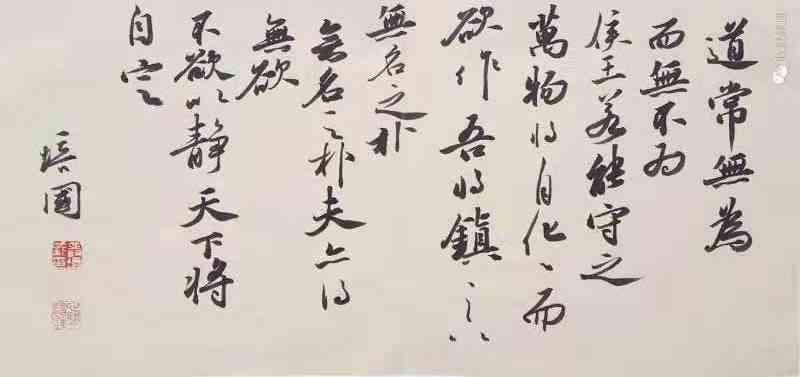 道常無為
而無不为
侯王若能守之
萬物将自化〻而
欲作吾将鎮之以
無名之朴
無名之朴夫亦将
無欲
不欲以静天下将
自定
培國